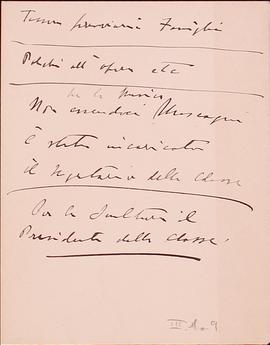 Tessera ferroviaria Famiglia
Palchi all'opera etc
per la Musica
Non essendoci Mascagni
è stato incaricato
il Segretario della Classe
Per la Scultura il
Presidente della Classe.
III. 1. 9